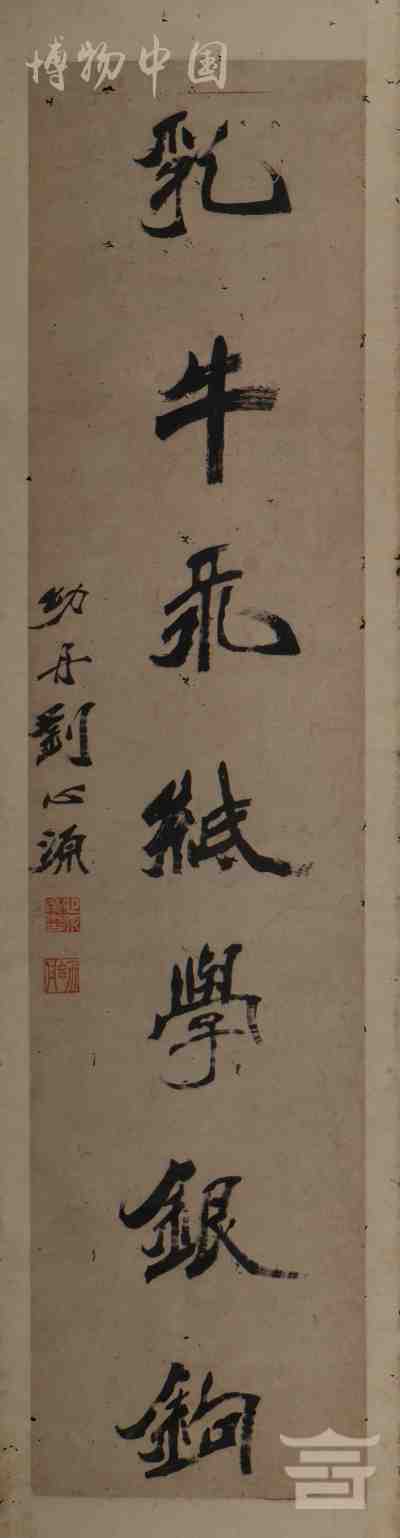 博物中国
乳牛紙學銀鉤
幼丹劉心源